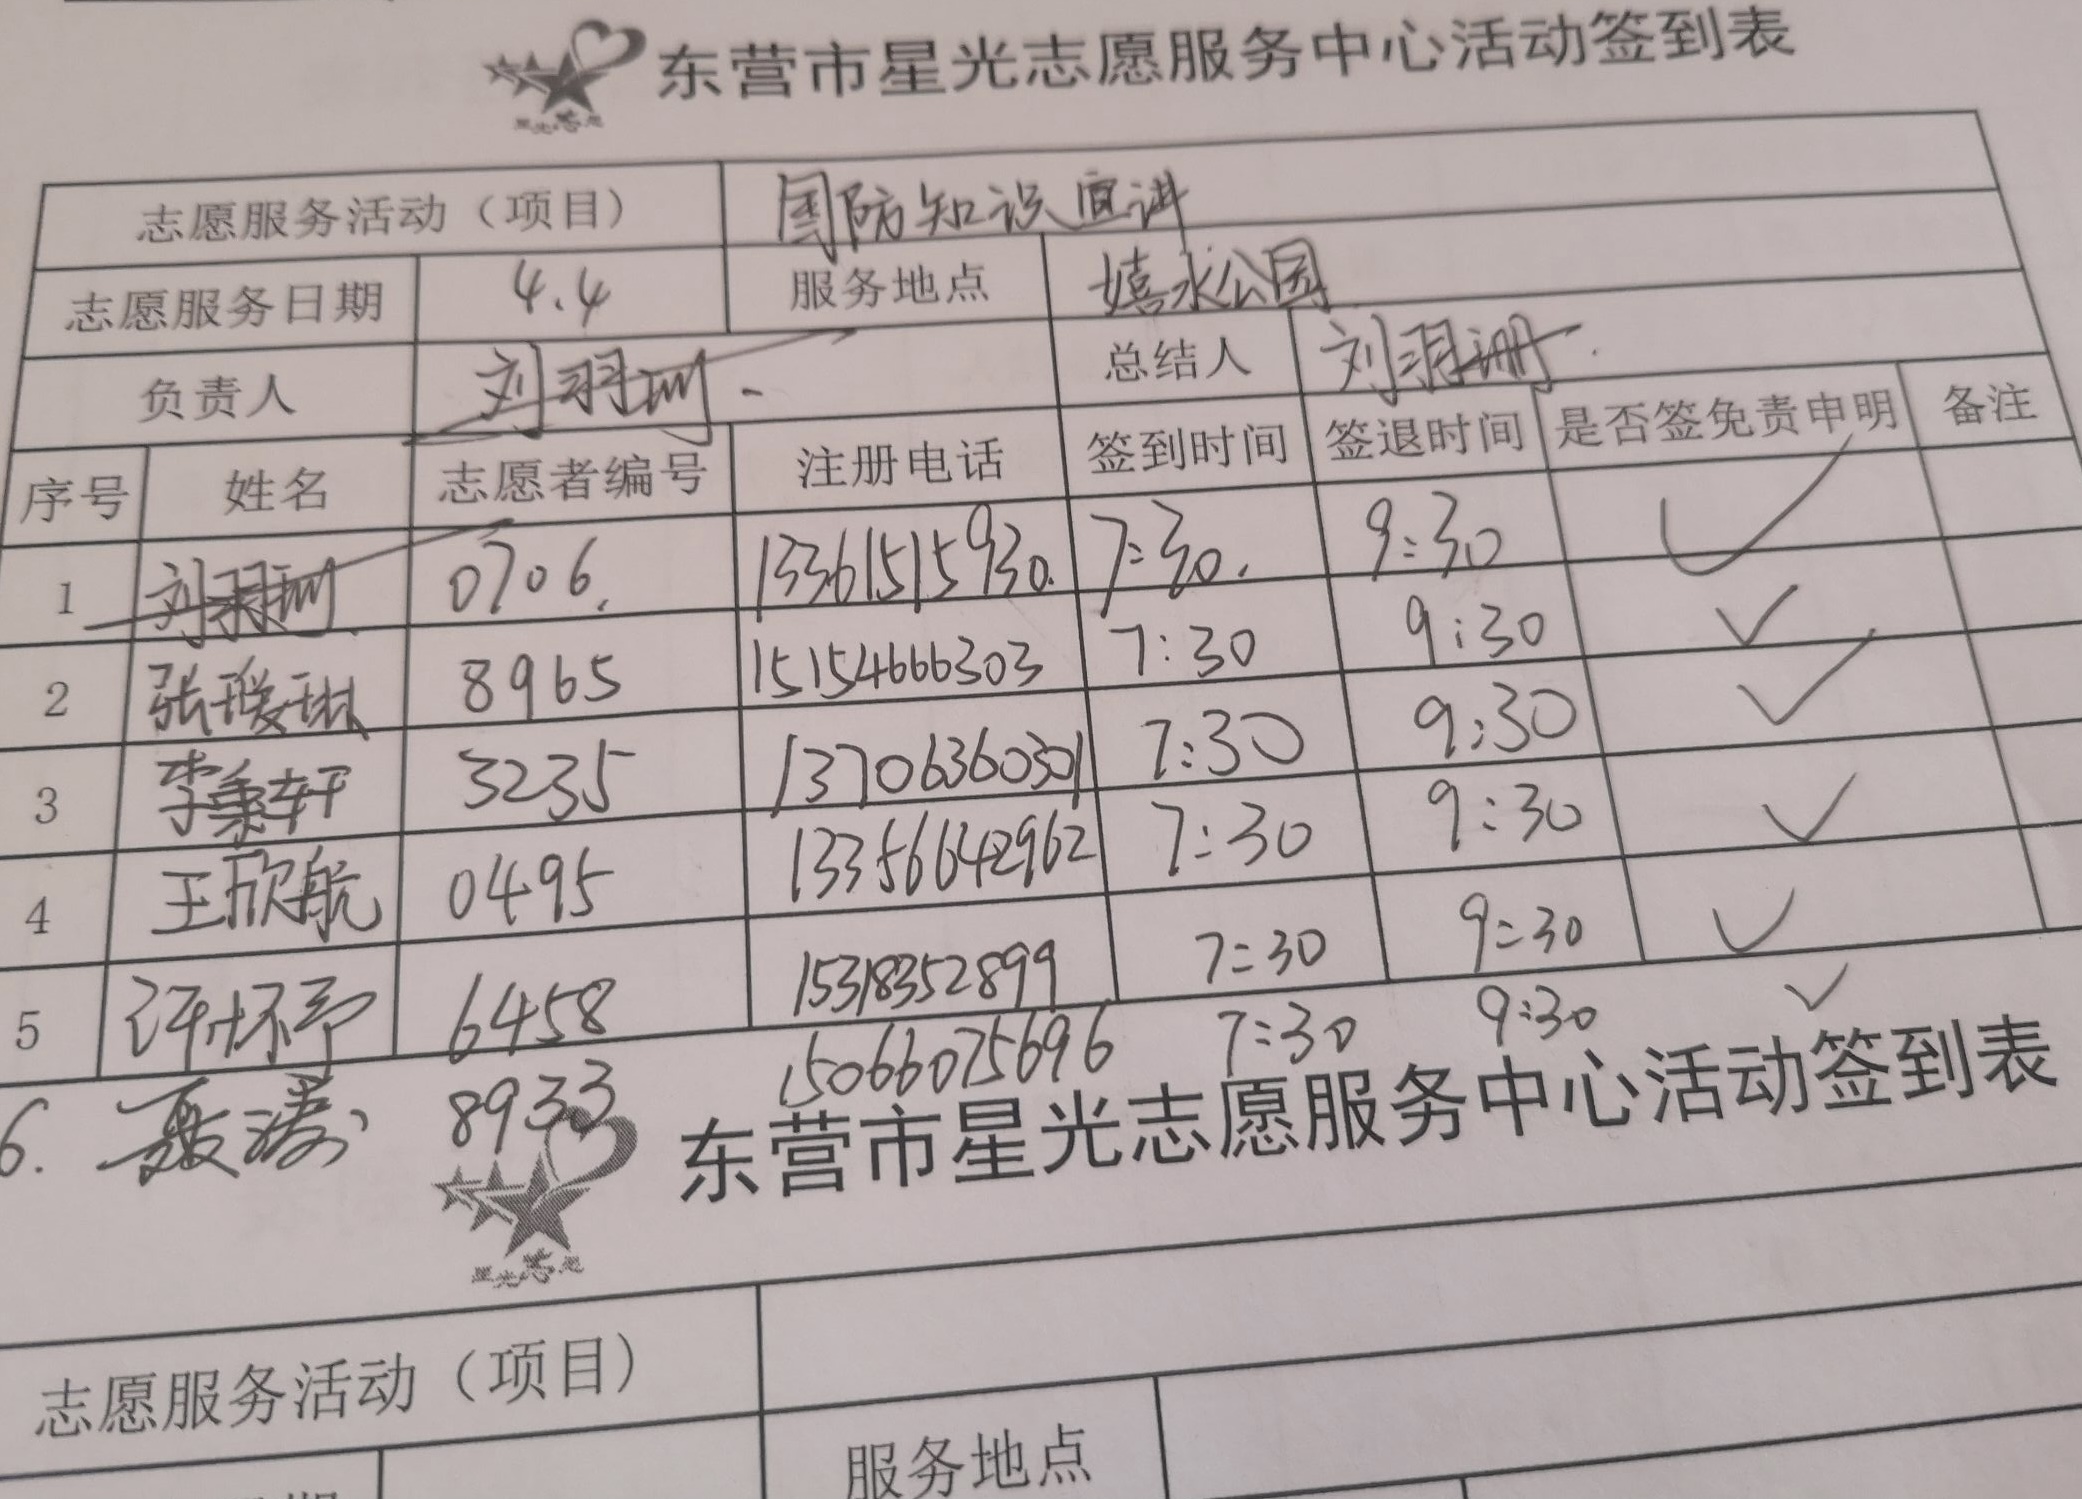 东营市星光志愿服务中心活动签到表
志愿服务活动（项目） 国防知识宣讲
志愿服务日期 4.4 服务地点 嬉水公园
负责人 刘羽珊 总结人 刘羽珊
序号 姓名 志愿者编号 注册电话 签到时间 签退时间 是否签免责申明 备注
1 刘羽珊 0706. 13361515930. 7:30. 9:30 ✓
2 张瑷琳 8965 15154666303 7:30 9:30 ✓
3 李秉轩 3235 13706360301 7:30 9:30 ✓
4 王欣航 0495 13356642962 7:30 9:30 ✓
5 许怀予 6458 15318352899 7:30 9:30 ✓
6. 聂涛 8933 15066075696 7:30 9:30 ✓
东营市星光志愿服务中心活动签到表
志愿服务活动（项目）
服务地点